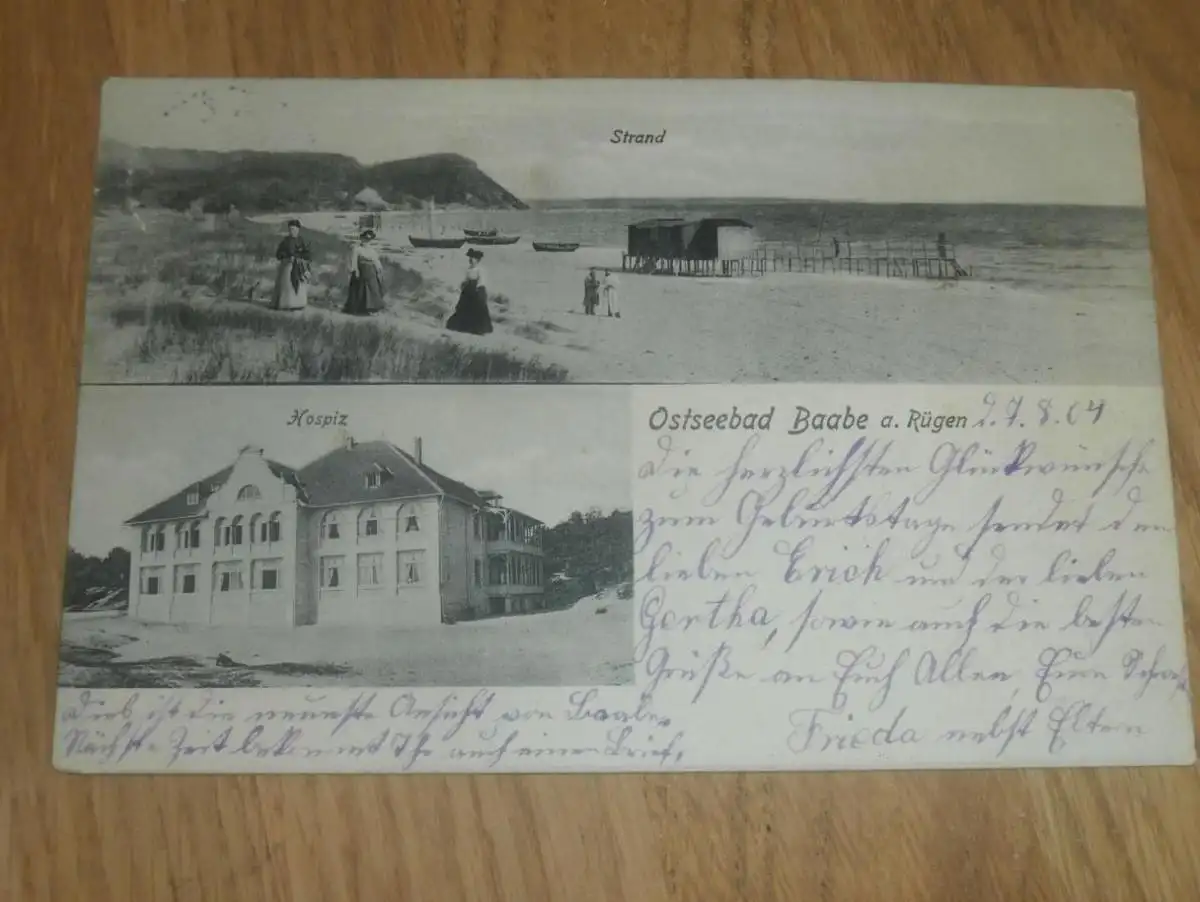 Strand
Hospiz
Ostseebad Baabe a. Rügen 27.8.04
Die herzlichsten Glückwünsche
zum Geburtstage sendet dem
lieben Erich und der lieben
Gertha, sowie auch die besten
Grüße an Euch Allen, Eure
Frieda nebst Eltern
Dies ist die neueste Ansicht von Baabe.
Nächste Zeit bekommt Ihr auch einen Brief.